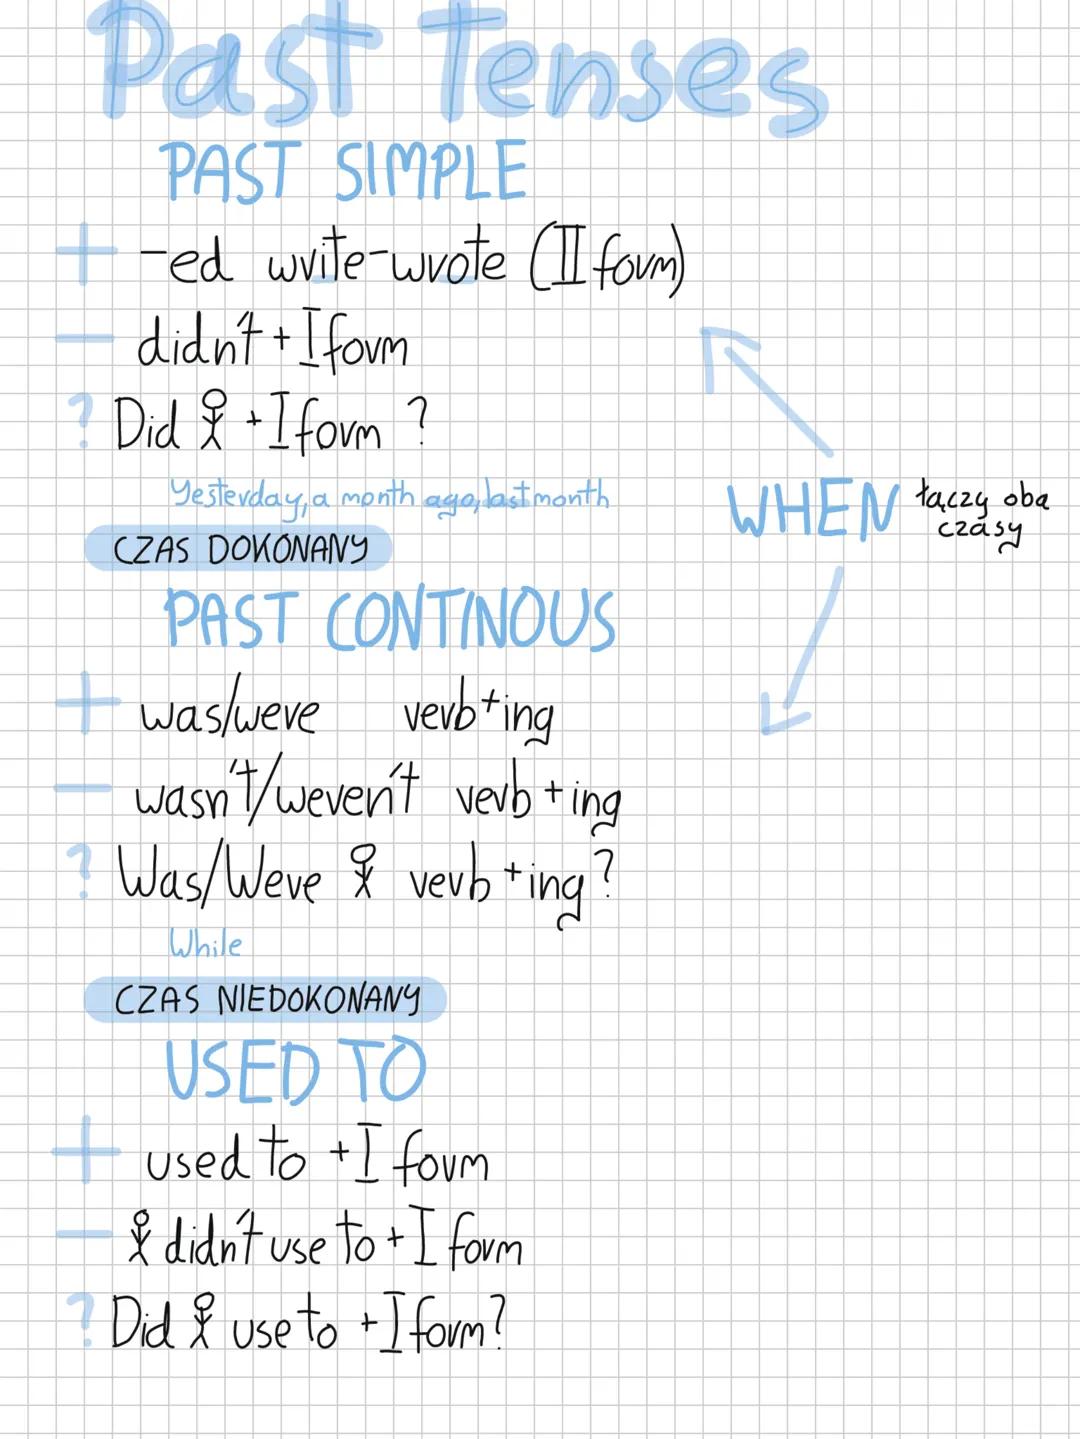 Past Tenses
PAST SIMPLE
+ -ed write-wrote (II form)
- didn't + I form
? Did + I form ?
Yesterday, a month ago, last month
WHEN łączy oba
czasy
CZAS DOKONANY
PAST CONTINOUS
+ was/were verb+ing
- wasn't/weren't verb+ing
? Was/Were verb+ing?
While
CZAS NIEDOKONANY
USED TO
+ used to + I form
- didn't use to + I form
? Did use to + I form?